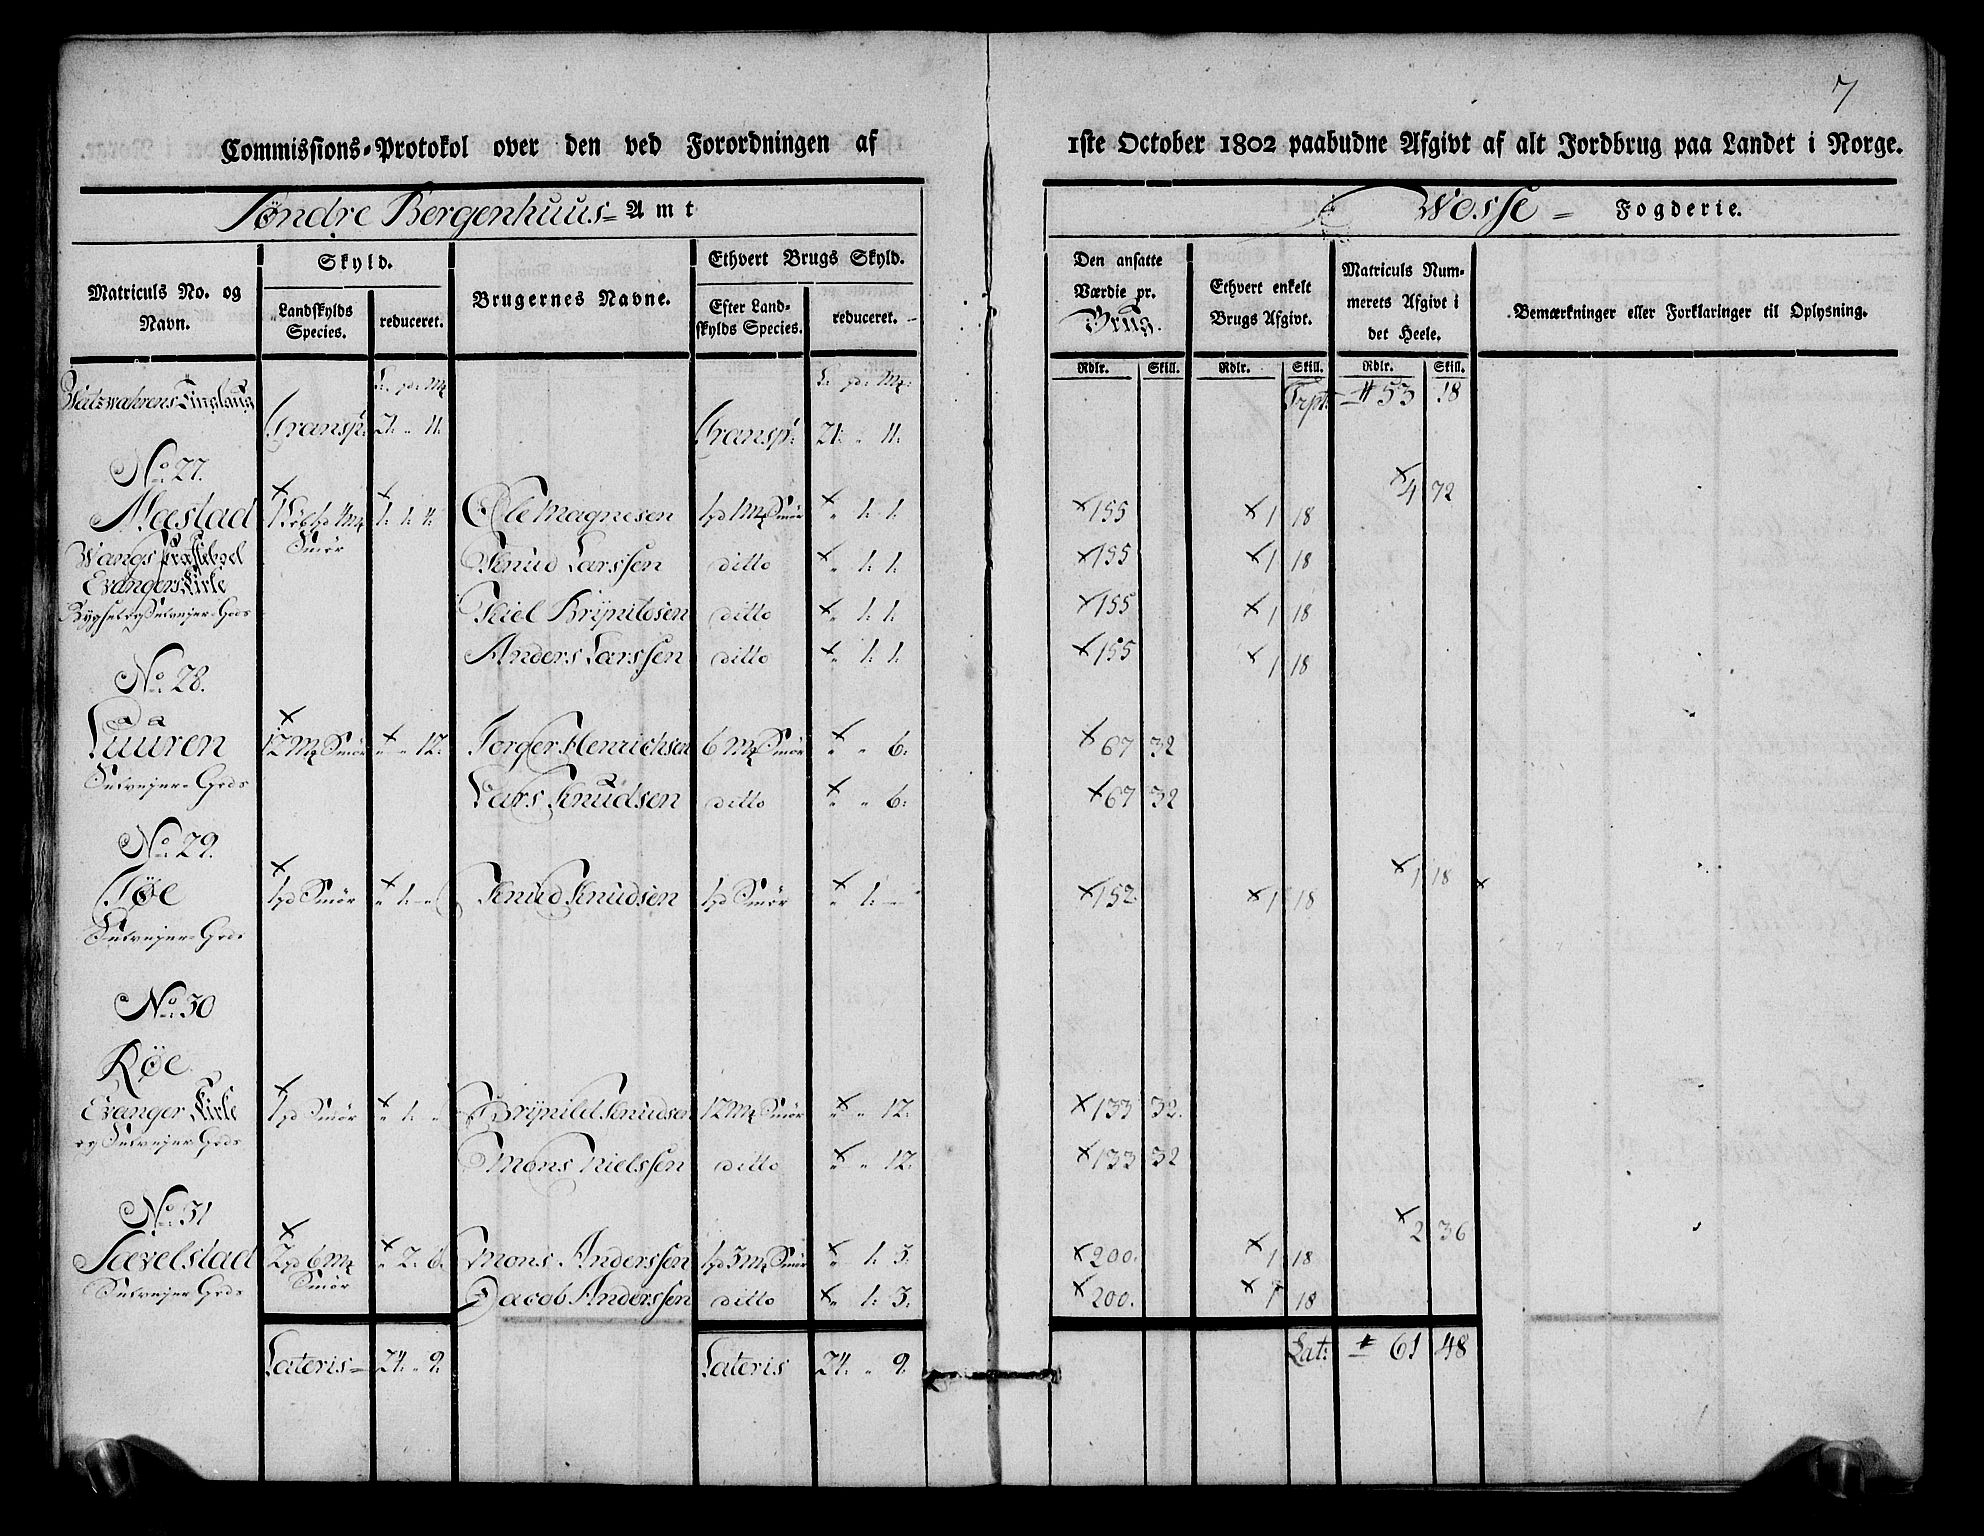 7
Commissions-Protokol over den ved Forordningen af 1ste October 1802 paabudne Afgivt af alt Jordbrug paa Landet i Norge.
Söndre Bergenhuus= Amt Wosse = Fogderie.
Matriculs No. og Navn. Skyld. Landskylds Species. reduceret. Brugernes Navne. Ethvert Brugs Skyld. Efter Landskylds Species. reduceret. Den ansatte Værdie pr. Brug. Ethvert enkelt Brugs Afgivt. Matriculs Nummerets Afgivt i det Heele. Bemærkninger eller Forklaringer til Oplysning.
Rdlr. Skill. Rdlr. Skill. Rdlr. Skill.
L. pd. Mk. L. pd. Mk.
Transp: 21. „ 11. Transp: 21. „ 11. Trpt: # 53 18
No. 27. × 4 72
Mestad 1 Løb 1 pd 4 Mk Smör 1. 1. 4. Ole Magnesen 1 pd 1 Mk Smör „ 1. 1. ×155 ×1 18
Wangs Præstebol Knud Larssen ditto „ 1. 1. ×155 ×1 18
Evangers Kirke
Bygsel og Selvejer-Gods Kiel Brÿnildsen ditto „ 1. 1. ×155 ×1 18
Anders Larssen ditto „ 1. 1. ×155 ×1 18
No. 28.
Luuren 12 Mk Smör „ „ 12. Torger Henrichsen 6 Mk Smör „ „ 6. ×67 32
Selvejer-Gods Lars Knudsen ditto „ „ 6. ×67 32
No. 29. × 1 18
Töe 1 pd Smör „ 1. „ Knud Knudsen 1 pd Smör „ 1. „ ×152. ×1 18
Selvejer-Gods
No. 30
Röe
Evanger Kirke 1 pd Smör „ 1. „ Brÿnild Knudsen 12 Mk Smör „ „ 12. ×133 32.
og Selvejer-Gods
Mons Nielssen ditto „ „ 12. ×133 32
No. 31 × 2 36
Sævelstad 2 pd 6 Mk Smör „ 2. 6. Mons Anderssen 1 pd 3 Mk Smör „ 1. 3. ×200. ×1 18
Selvejer-Gods Jacob Anderssen ditto „ 1. 3. ×200. ×1 18
Lateris 24. „ 9. Lateris 24. „ 9. Lat: # 61 48